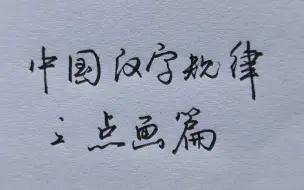 中国汉字规律
之点画篇